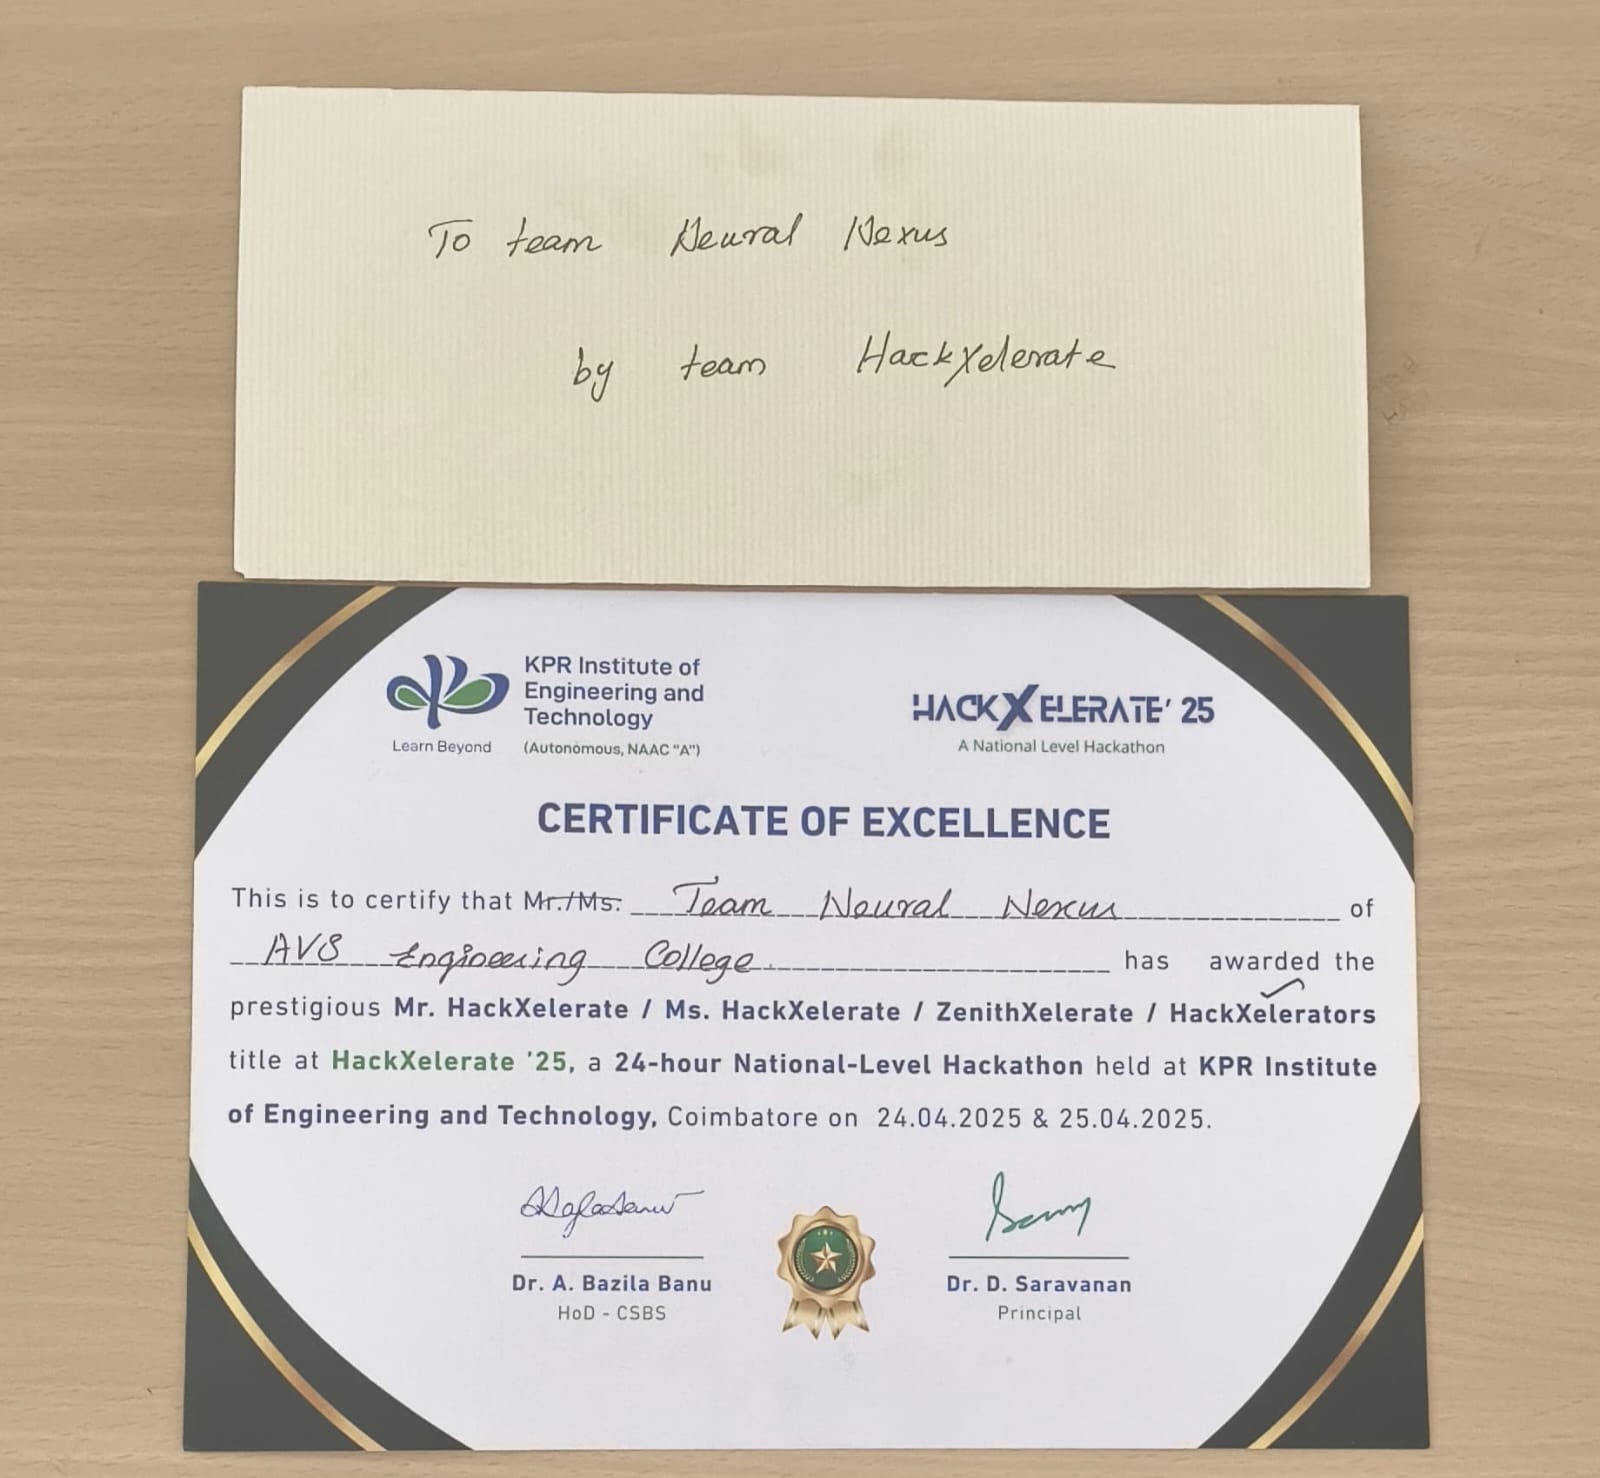 To team Neural Nexus
by team HackXelerate
KPR Institute of
Engineering and
Technology
Learn Beyond
(Autonomous, NAAC "A")
HACKXELERATE' 25
A National Level Hackathon
CERTIFICATE OF EXCELLENCE
This is to certify that Mr./Ms. Team Neural Nexus of
AVS Engineering College has awarded the
prestigious Mr. HackXelerate / Ms. HackXelerate / ZenithXelerate / HackXelerators
title at HackXelerate '25, a 24-hour National-Level Hackathon held at KPR Institute
of Engineering and Technology, Coimbatore on 24.04.2025 & 25.04.2025.
Dr. A. Bazila Banu
HoD - CSBS
Dr. D. Saravanan
Principal